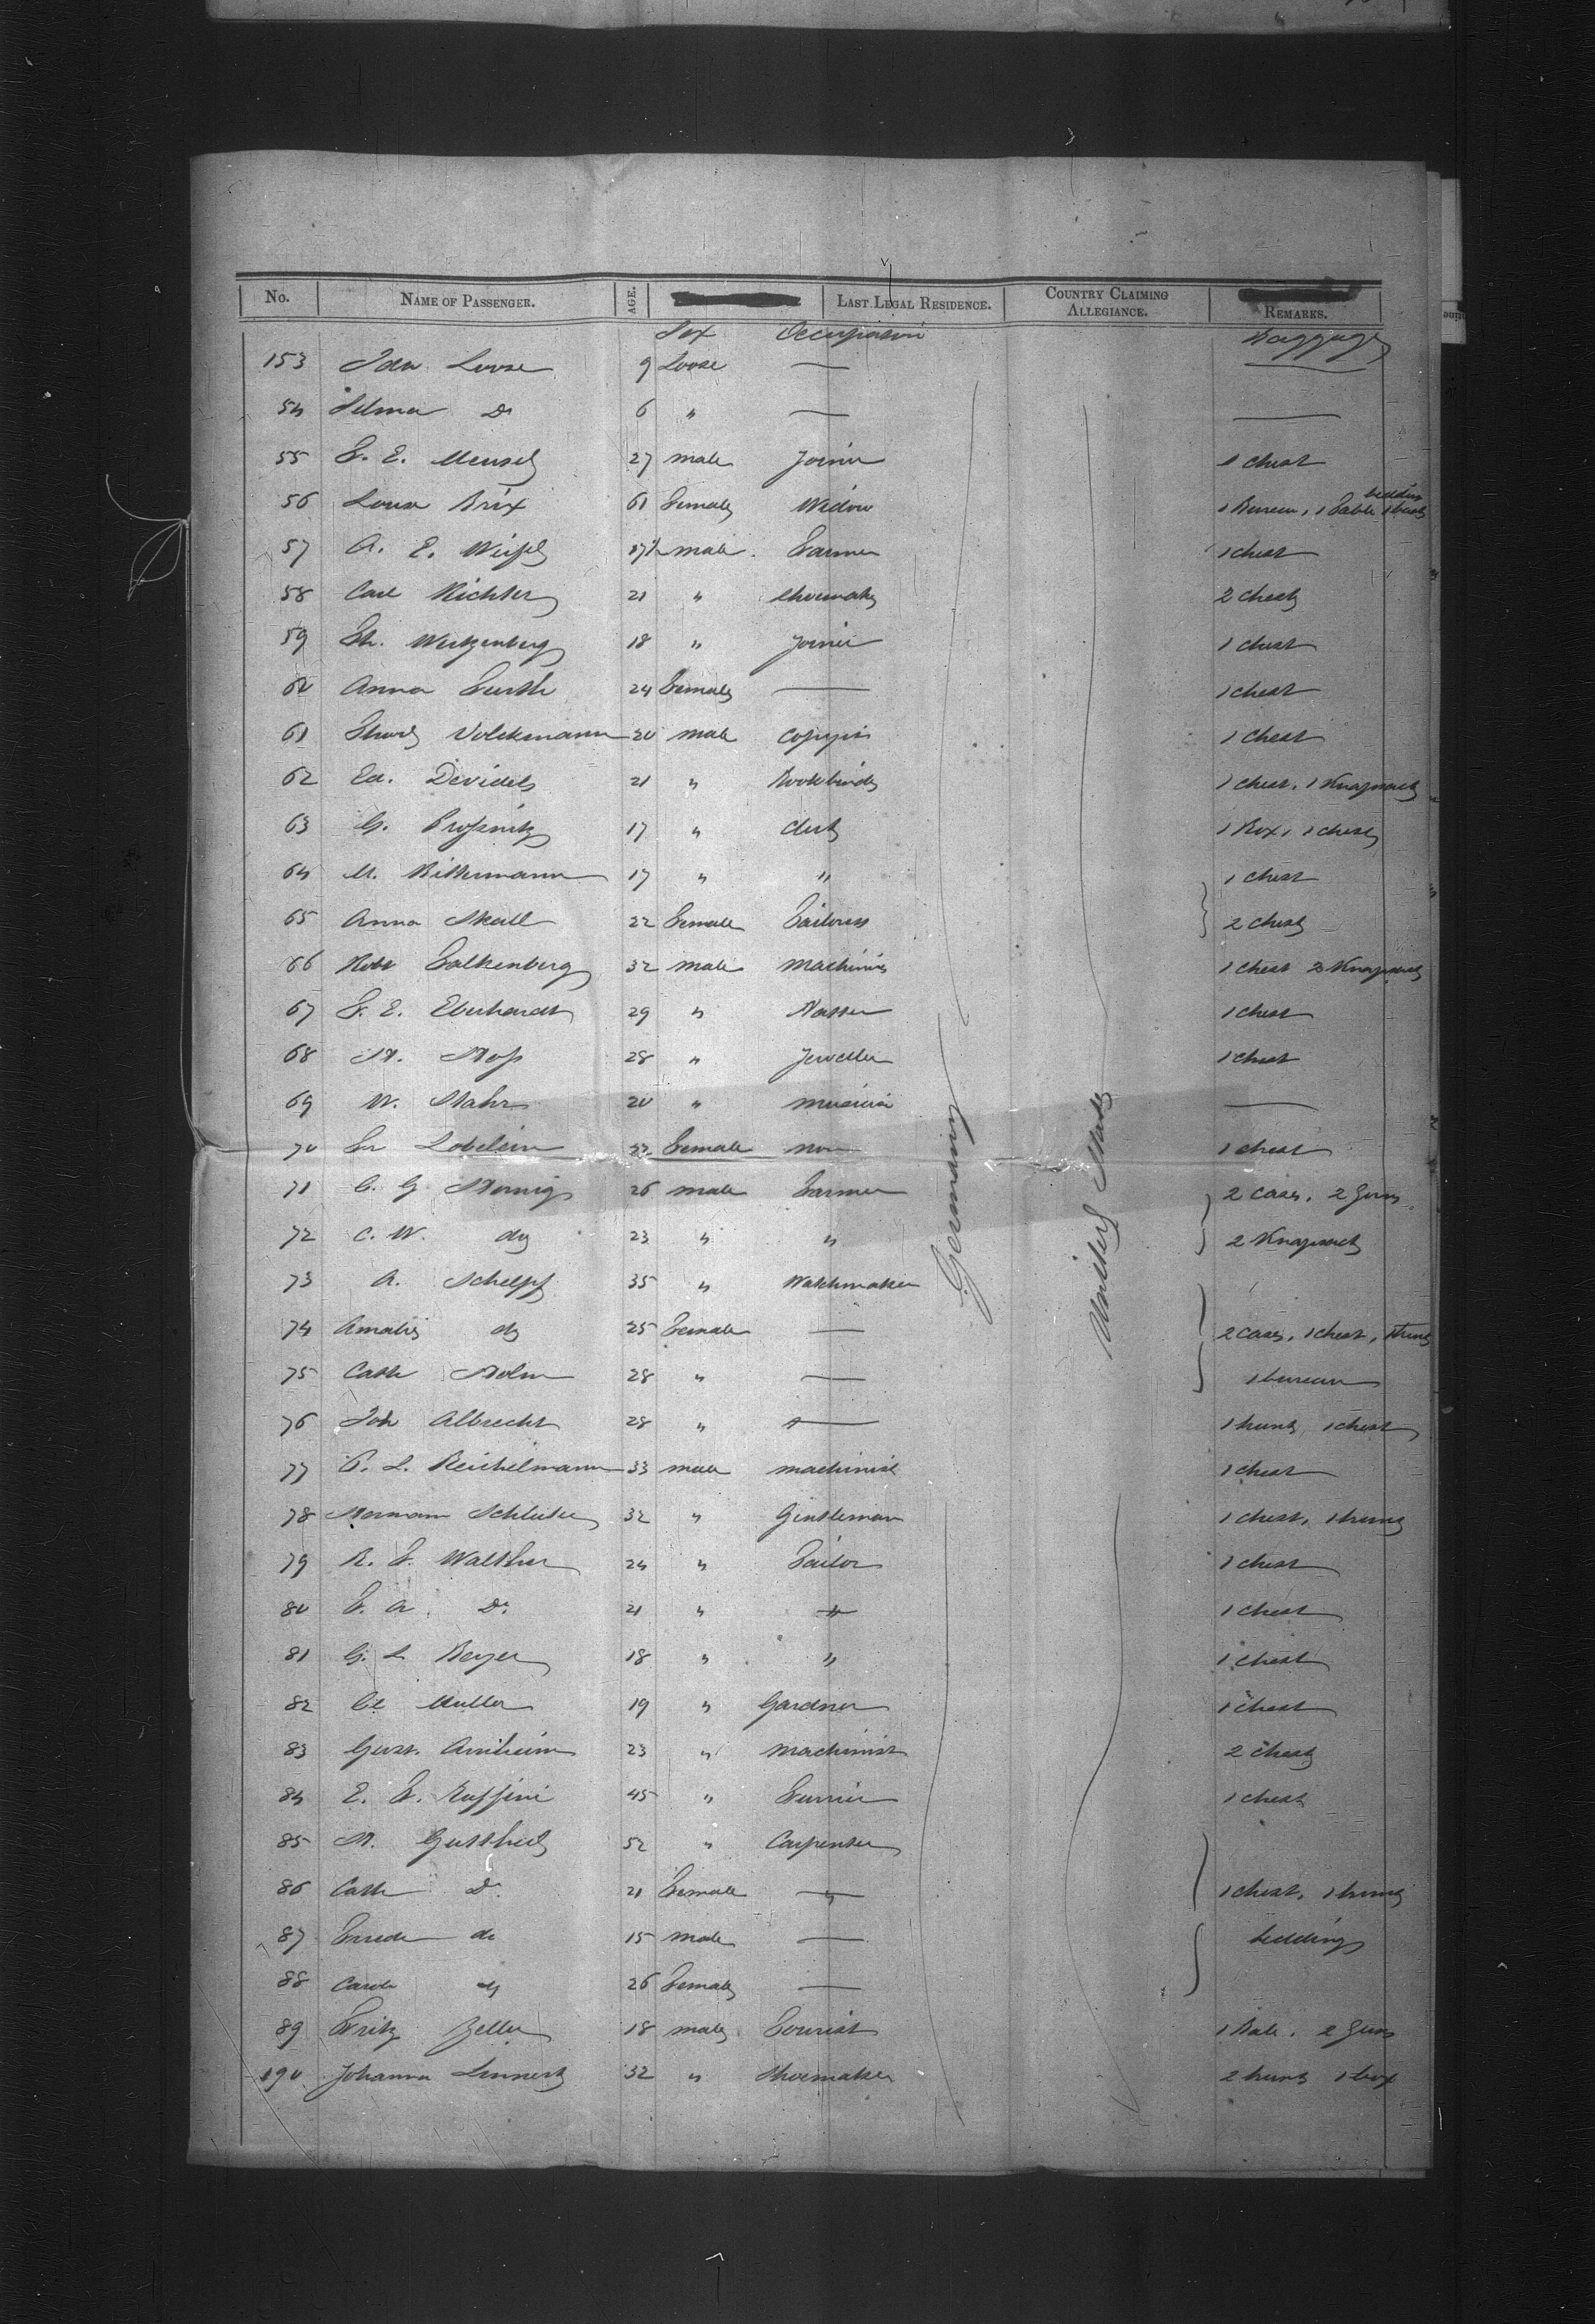 No. NAME OF PASSENGER. AGE. LAST LEGAL RESIDENCE. COUNTRY CLAIMING ALLEGIANCE. REMARKS.
Sex Occupation Baggage
153 Ida Loose 9 Loose —
54 Selma Do 6 " — —
55 F. E. Mensel 27 male Joiner 1 chest
56 Louise Brix 61 Female Widow 1 Bureau, 1 Table bedding
57 A. E. 17½ male Farmer 1 chest
58 Carl Richter 21 " Shoemaker 2 chests
59 Fr. Wertzenberg 18 " Joiner 1 chest
60 Anna Furth 24 Female — 1 chest
61 Volckmann 20 male Copyist 1 chest
62 Ed. Devidels 21 " Bookbinder 1 chest, 1 Knapsack
63 G. Proßnitz 17 " clerk 1 Box, 1 chest
64 M. Rittermann 17 " " 1 chest
65 Anna Skall 22 Female Tailoress 2 chests
66 Robt Falkenberg 32 male Machinist 1 chest 2 Knapsack
67 F. E. Eberhardt 29 " 1 chest
68 H. Hoß 28 " Jeweller 1 chest
69 W. Stahr 20 " musician —
70 Lobelein 22 Female none 1 chest
71 C. G Hornig 26 male Farmer 2 cases, 2 Guns
72 C. W. do 23 " " 2 Knapsack
73 A. Schelpf 35 " Watchmaker
74 Amalie do 25 Female — 2 cases, 1 chest, 1 trunk
75 Cath Holm 28 " — 1 bureau
76 Joh Albrecht 28 " — 1 trunk 1 chest
77 P. L. Reichelmann 33 male machinist 1 chest
78 Hermann Schluter 32 " Gentleman 1 chest, 1 trunk
79 R. F. Walther 24 " Tailor 1 chest
80 F. A. Do 21 " " 1 chest
81 G. L Beyer 18 " " 1 chest
82 Muller 19 " Gardner 1 chest
83 Gust. Arnheim 23 " Machinist 2 chests
84 E. F. Ruffini 45 " Furrier 1 chest
85 H. Guttheil 52 " Carpenter
86 Cath Do 21 Female — 1 chest, 1 trunk
87 Friede do 15 male — bedding
88 Carole do 26 Female —
89 Fritz Zeller 18 male Tourist 1 Bale, 2 Guns
190 Johanna Linnert 32 " Shoemaker 2 trunk 1 box
Germany
United States